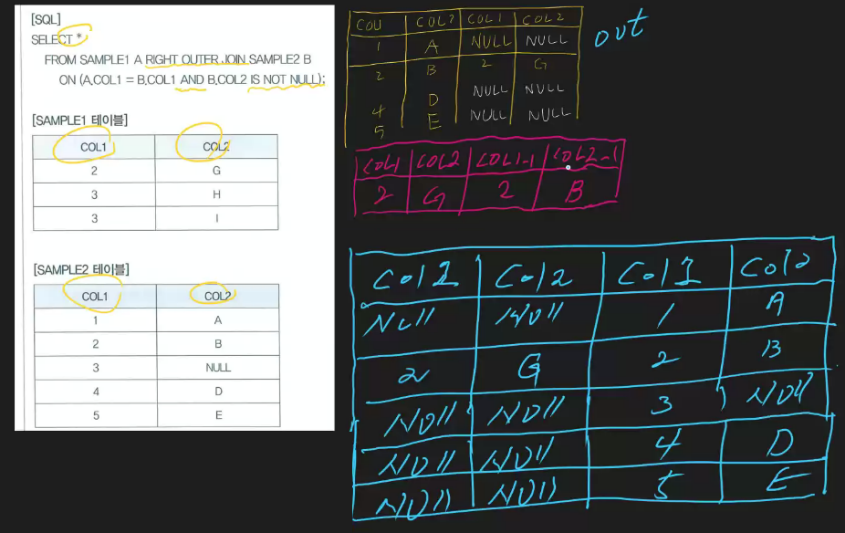 [SQL]
SELECT *
FROM SAMPLE1 A RIGHT OUTER JOIN SAMPLE2 B
ON (A,COL1 = B,COL1 AND B,COL2 IS NOT NULL);
[SAMPLE1 테이블]
COL1 COL2
2 G
3 H
3 I
[SAMPLE2 테이블]
COL1 COL2
1 A
2 B
3 NULL
4 D
5 E
COL1 COL2 COL1 COL2
1 A NULL NULL
2 B 2 G
NULL NULL
4 D NULL NULL
5 E
out
COL1 COL2 COL1-1 COL2-1
2 G 2 B
Col1 Col2 Col1 Col2
Null Null 1 A
2 G 2 B
Null Null 3 Null
Null Null 4 D
Null Null 5 E